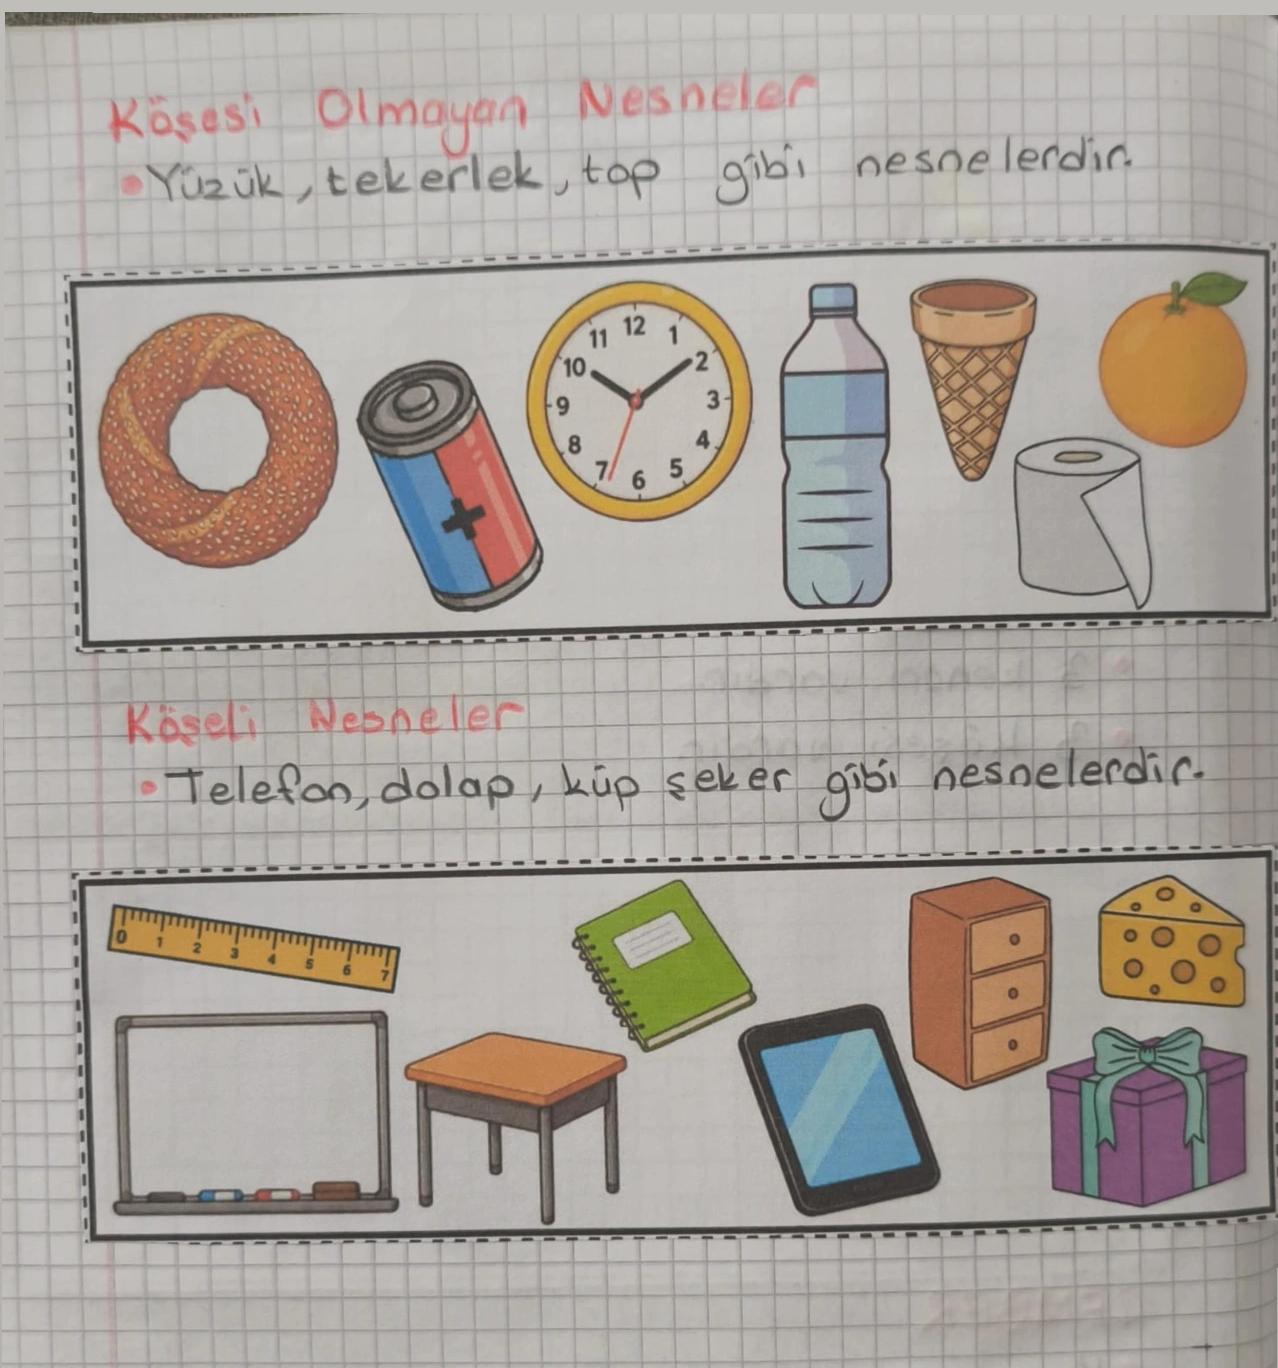 Köşesi Olmayan Nesneler
• Yüzük, tekerlek, top gibi nesnelerdir.
11 12 1
10 2
9 3
8 4
7 6 5
+
Köşeli Nesneler
• Telefon, dolap, küp şeker gibi nesnelerdir.
0 1 2 3 4 5 6 7